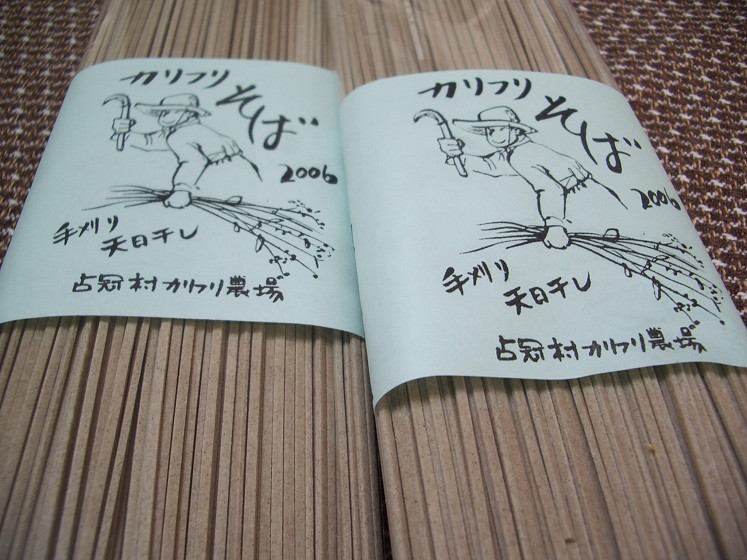 カリフリ
そば
2006
手刈り
天日干し
占冠村カリフリ農場
カリフリ
そば
2006
手刈り
天日干し
占冠村カリフリ農場